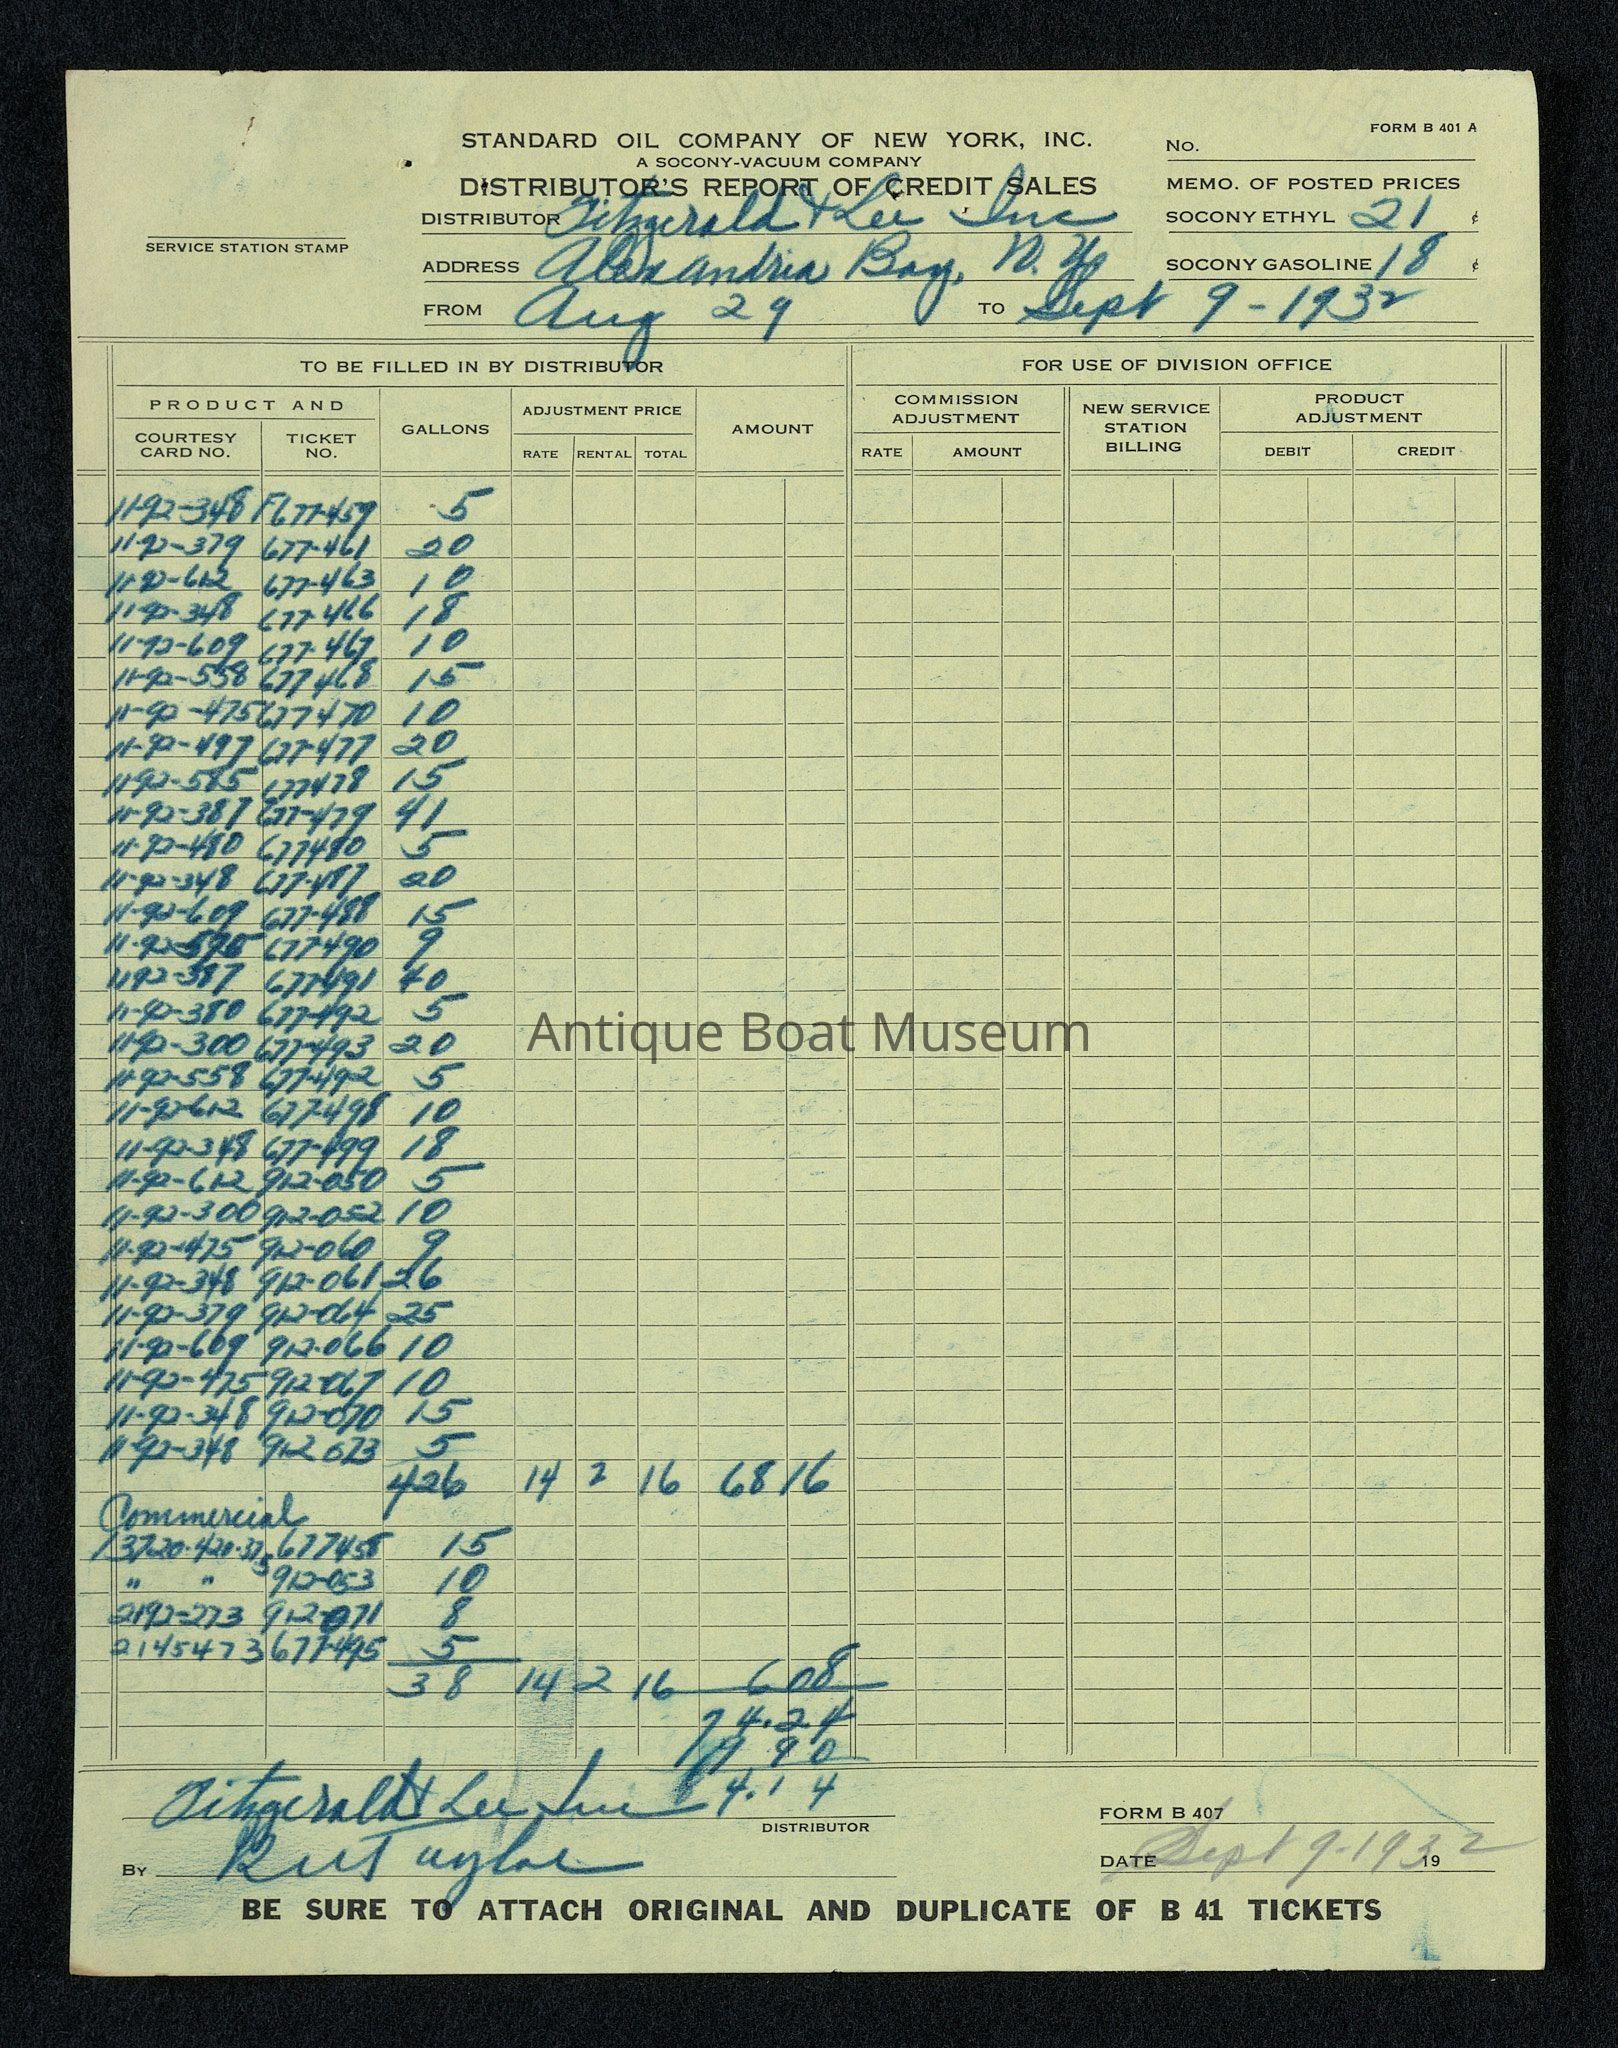 FORM B 401 A
STANDARD OIL COMPANY OF NEW YORK, INC.
No.
A SOCONY-VACUUM COMPANY
DISTRIBUTOR'S REPORT OF CREDIT SALES
MEMO. OF POSTED PRICES
DISTRIBUTOR Fitzgerald & Lee Inc
SOCONY ETHYL 21 ¢
SERVICE STATION STAMP
ADDRESS Alexandria Bay, N. Y.
SOCONY GASOLINE 18 ¢
FROM Aug 29 TO Sept 9-1932
TO BE FILLED IN BY DISTRIBUTOR
FOR USE OF DIVISION OFFICE
PRODUCT AND
COURTESY CARD NO.
TICKET NO.
GALLONS
ADJUSTMENT PRICE
RATE RENTAL TOTAL
AMOUNT
COMMISSION ADJUSTMENT
RATE AMOUNT
NEW SERVICE STATION BILLING
PRODUCT ADJUSTMENT
DEBIT CREDIT
11-92-348 F677-459 5
11-92-379 677-461 20
11-92-612 677-463 10
11-92-348 677-466 18
11-92-609 677-467 10
11-92-558 677468 15
11-92-475 677470 10
11-92-497 677-477 20
11-92-585 677478 15
11-92-387 677-479 41
11-92-480 677480 5
11-92-348 677-487 20
11-92-609 677-488 15
11-92-595 677-490 9
1192-387 677-491 40
11-92-380 677-492 5
11-92-300 677-493 20
11-92-558 677-492 5
11-92-612 677-498 10
11-92-348 677-499 18
11-92-612 912-050 5
11-92-300 912-052 10
11-92-475 912-060 9
11-92-348 912-061 26
11-92-379 912-064 25
11-92-609 912-066 10
11-92-475 912-067 10
11-92-348 912-070 15
11-92-348 912 073 5
426 14 2 16 68 16
Commercial
13720-420-375 677458 15
" " 912-053 10
2192-273 912-071 8
2145473 677-495 5
38 14 2 16 6 08
74.24
9 90
4.14
Fitzgerald & Lee Inc
DISTRIBUTOR
FORM B 407
By R W Taylor
DATE Sept 9-1932 19
BE SURE TO ATTACH ORIGINAL AND DUPLICATE OF B 41 TICKETS
Antique Boat Museum